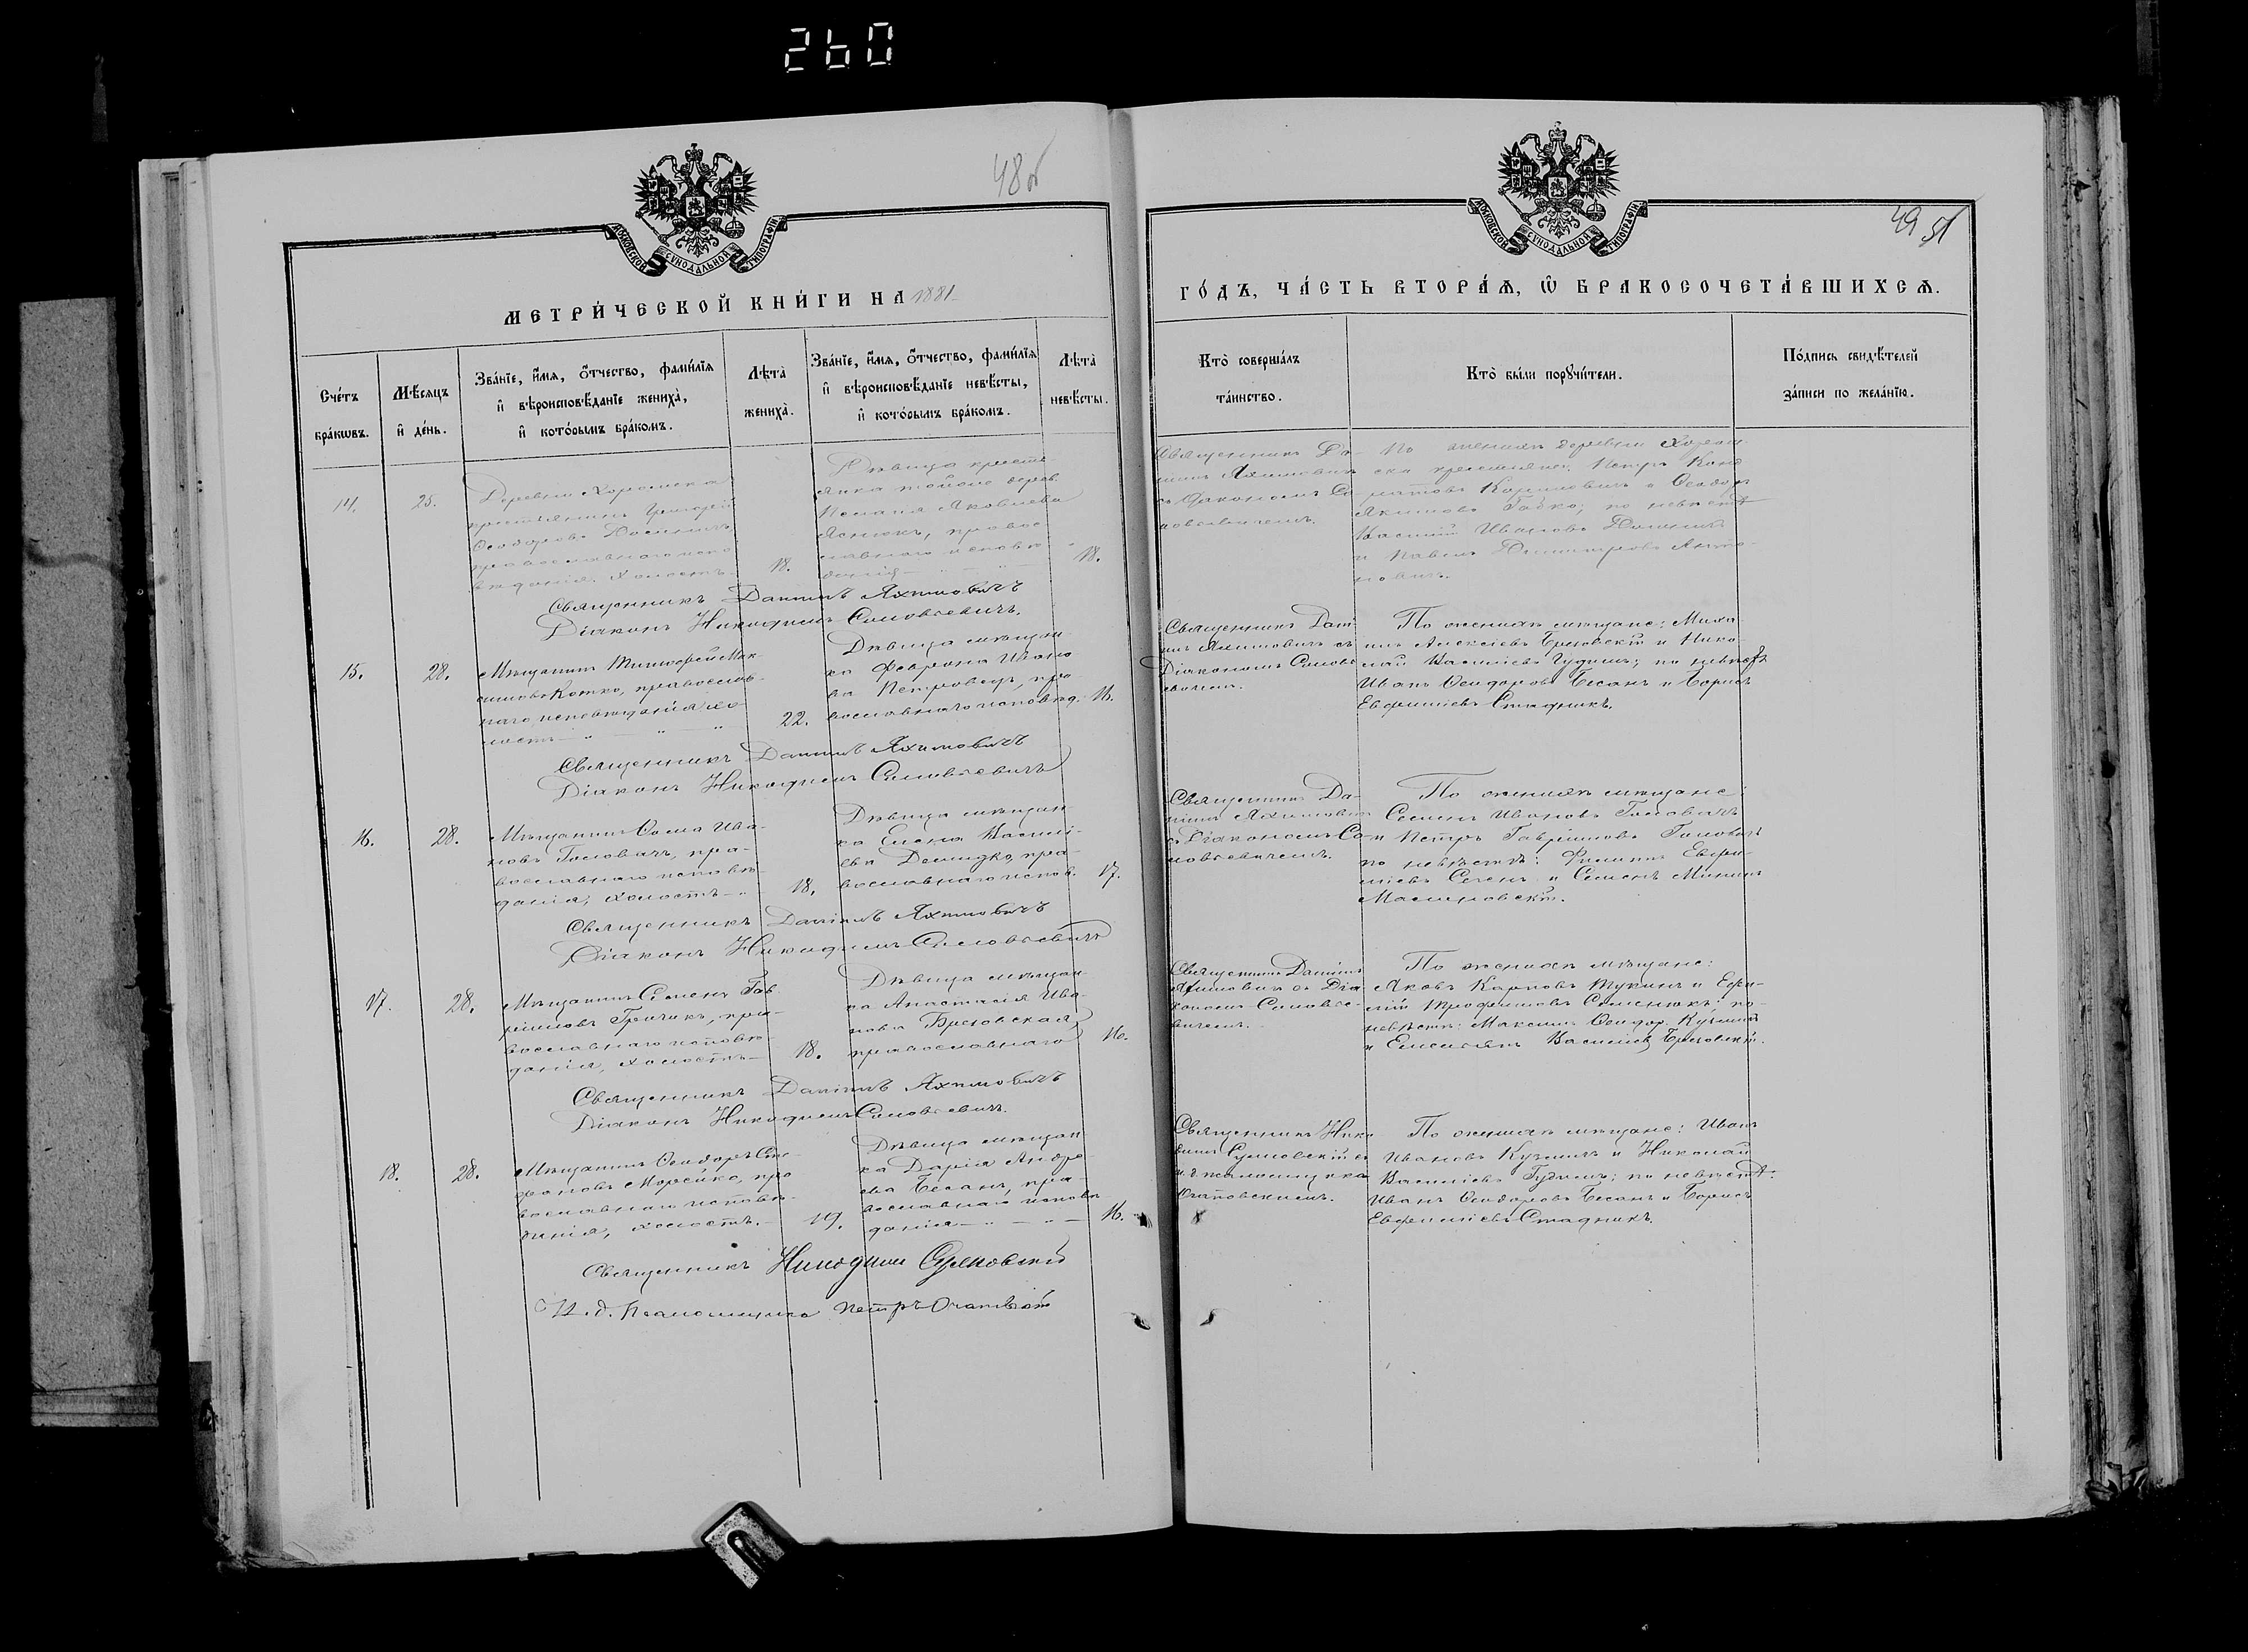 260
48об
МОСКОВСКОЙ СѴНОДАЛЬНОЙ ТИПОГРАФІИ
МЕТРИ́ЧЕСКОЙ КНИ́ГИ НА 1881
Сче́тъ бра́кѡвъ.
Мѣ́сяцъ и҆ де́нь.
Зва́нїе, и҆́мѧ, ѻ҆́тчество, фами́лїѧ
и҆ вѣроисповѣ́данїе женихà,
и҆ кото́рымъ бра́комъ.
Лѣ́та женихà.
Зва́нїе, и҆́мѧ, ѻ҆́тчество, фами́лїѧ
и҆ вѣроисповѣ́данїе невѣ́сты,
и҆ кото́рымъ бра́комъ.
Лѣ́та невѣ́сты.
14.
25.
православнаго испо
вѣданія. Холостъ.
18.
Дѣвица кресть-
янка
Яковлева
православнаго исповѣ
18.
Священникъ Даніилъ Яхимовичъ
Діаконъ Никодимъ Соловьевичъ.
15.
28.
Мѣщанинъ Тимофей Мак-
симовъ Котко, православ-
наго исповѣданія, хо-
лостъ
22.
Дѣвица мѣщан
ка Феврона Ивано
ва Петровец, пра
вославнаго исповѣд.
16.
Священникъ Даніилъ Яхимовичъ
Діаконъ Никодимъ Соловьевичъ
16.
28.
Мѣщанинъ Ѳома Ива-
новъ Головачъ, пра-
вославнаго исповѣ-
данія, холостъ
18.
Дѣвица мѣщан
ка Елена Васильі-
ева Демидко, пра-
вославнаго испов.
17.
Священникъ Даніилъ Яхимовичъ
Діаконъ Никодимъ Соловьевичъ
17.
28.
Мѣщанинъ Семенъ Гав-
ріиловъ Гричикъ, пра-
вославнаго исповѣ-
данія, холостъ
18.
Дѣвица мѣщан-
ка Анастасія Ива-
нова Брезовская,
православнаго
16.
Священникъ Даніилъ Яхимовичъ
Діаконъ Никодимъ Соловьевичъ.
18.
28.
Мѣщанинъ Ѳеодоръ Сте-
фановъ Морейко, пра
вославнаго исповѣ-
данія, холостъ.
19.
Дѣвица мѣщан
ка Дарія Андре-
ева Бесанъ, пра-
вославнаго исповѣ
данія
16.
Священникъ Никодимъ
И. д. Псаломщика Петръ
49 51
МОСКОВСКОЙ СѴНОДАЛЬНОЙ ТИПОГРАФІИ
ГО́ДЪ, ЧА́СТЬ ВТОРА́Ѧ, Ѽ БРАКОСОЧЕТА́ВШИХСѦ.
Кто̀ соверша́лъ
та́инство.
Кто̀ бы́ли порꙋчи́тели.
По́дпись свидѣ́телей
за́писи по жела́нїю.
Священникъ Да-
ніилъ Яхимовичъ
съ Діакономъ Со-
ловьевичемъ.
По женихѣ деревни
крестьяне: Петръ
и Ѳеодоръ
Акимовъ; по невѣстѣ
Василій Ивановъ
и Павелъ Димитріевъ Анто-
новичъ.
Священникъ Дані
илъ Яхимовичъ съ
Діакономъ Соловь
евичемъ.
По женихѣ мѣщане: Миха
илъ Алексіевъ Брезовскій и Нико
лай Василіевъ Гудимъ; по невѣстѣ
Иванъ Ѳеодоровъ Бесанъ и Борисъ
Евфиміевъ Стадникъ.
Священникъ Да-
ніилъ Яхимовичъ
съ Діакономъ Со-
ловьевичемъ.
По женихѣ мѣщане:
Семенъ Ивановъ Головачъ
и Петръ Гавріиловъ Головачъ
по невѣстѣ: Филиппъ Евфи-
міевъ и Семенъ Мининъ
Малиновскій.
Священникъ Даніилъ
Яхимовичъ съ Діа
кономъ Соловье-
вичемъ.
По женихѣ мѣщане:
Яковъ Карповъ и Ефи-
мій Трофимовъ Семенюкъ; по
невѣстѣ: Максимъ Ѳеодор. Кузьмичъ
и Василіев Брезовскій.
Священникъ Нико
димъ съ
и. д. псаломщика
По женихѣ мѣщане: Иванъ
Ивановъ Кузьмичъ и Николай
Василіевъ Гудимъ; по невѣстѣ:
Иванъ Ѳеодоровъ Бесанъ и Борисъ
Евфиміевъ Стадникъ.